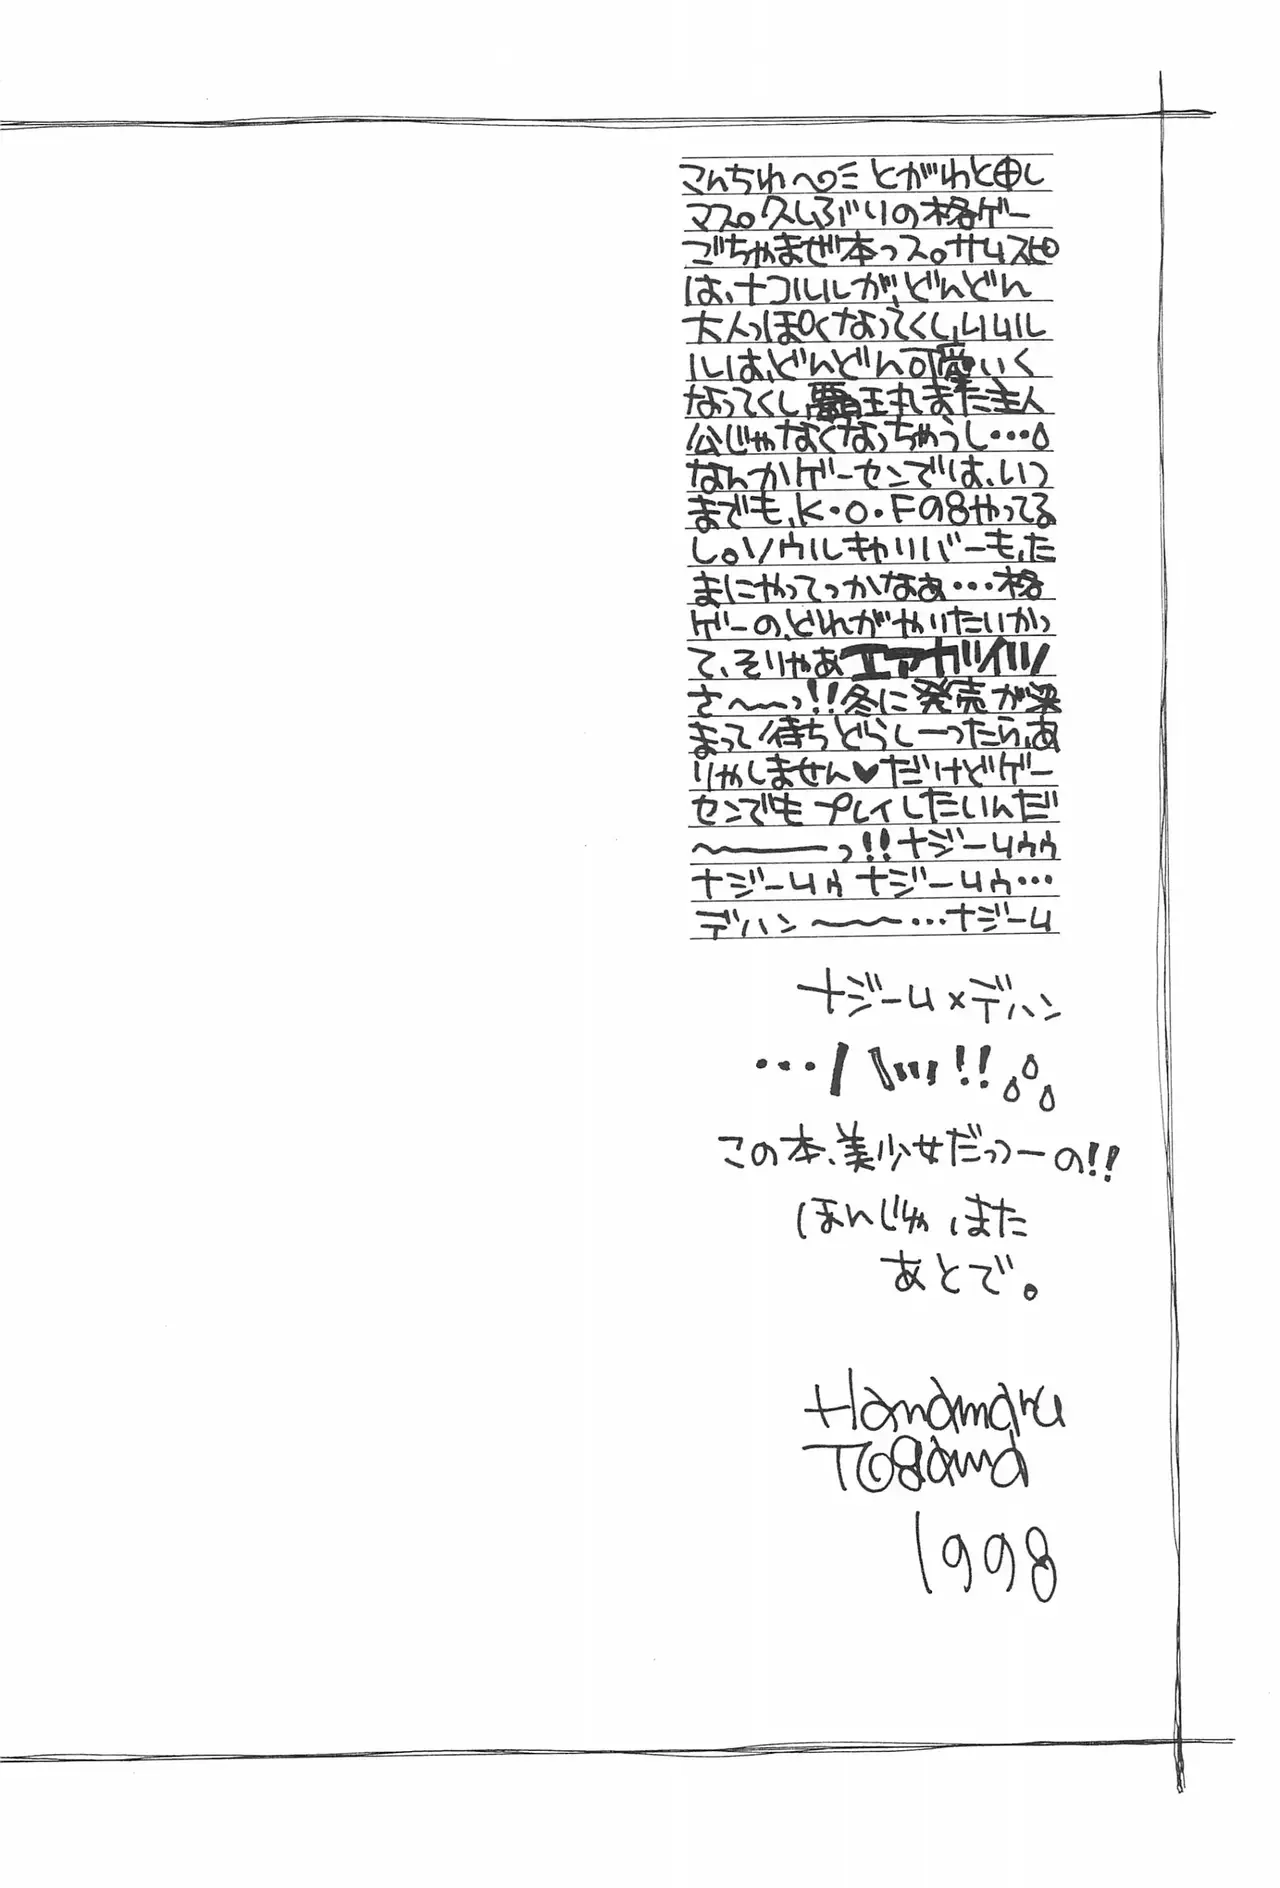 こんちわ〜 とがわと申し
マス。久しぶりの格ゲー
ごちゃまぜ本っス。サムスピ
は、ナコルルが、どんどん
大人っぽくなってくし、リムル
ルは、どんどん可愛いく
なってくし覇王丸また主人
公じゃなくなっちゃうし…
なんかゲーセンでは、いつ
までも、K・O・F98やってる
し。ソウルキャリバーも、た
まにやってっかなぁ…格
ゲーの、どれがやりたいかっ
て、そりゃあエアガイツ
さ〜〜っ!!冬に発売が決
まって待ちどらしーったら、あ
りゃしません♥だけどゲー
センでもプレイしたいんだ
〜〜〜っ!!ナジームゥゥ
ナジームゥナジームゥ…
デハン〜〜〜…ナジーム
ナジーム×デハン
…ハッ!!
この本、美少女だっつーの!!
ほんじゃ、また
あとで。
Handmaru
Togawa
1998